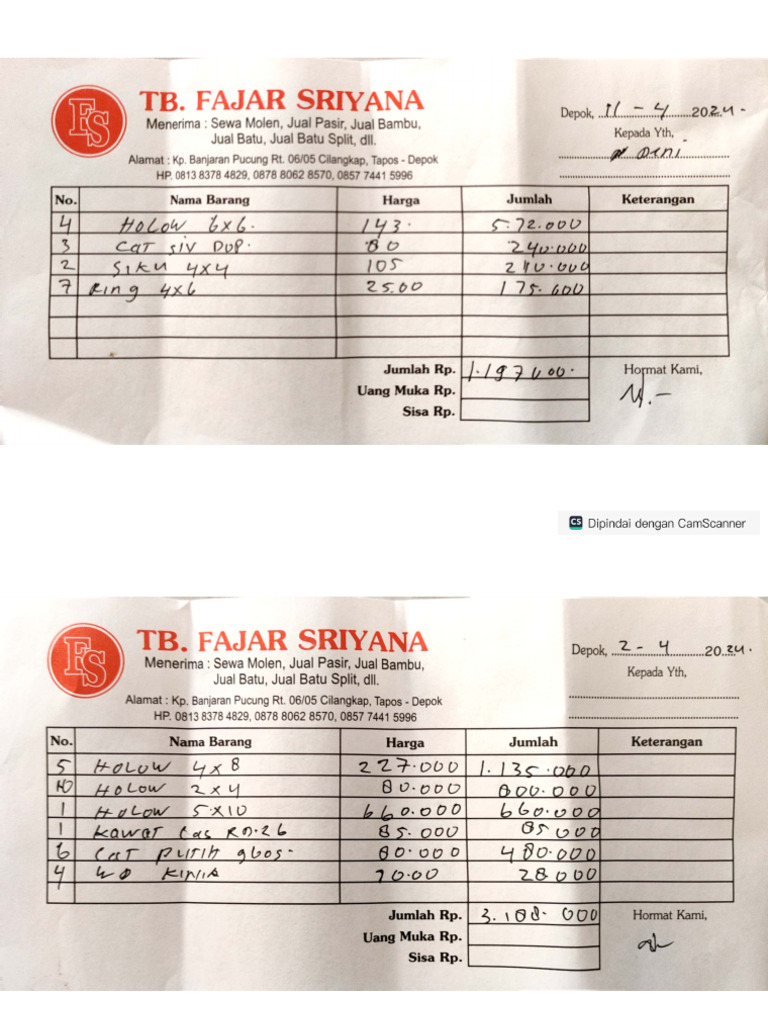 FS
TB. FAJAR SRIYANA
Menerima : Sewa Molen, Jual Pasir, Jual Bambu,
Jual Batu, Jual Batu Split, dll.
Alamat : Kp. Banjaran Pucung Rt. 06/05 Cilangkap, Tapos - Depok
HP. 0813 8378 4829, 0878 8062 8570, 0857 7441 5996
Depok, 11 - 4 2024.
Kepada Yth,
No. Nama Barang Harga Jumlah Keterangan
4 HOLOW 6x6. 143. 5.72.000
3 CAT SIV DOP. 80 240.000
2 SIKU 4x4 105 210.000
7 Ring 4x6 25.00 175.000
Jumlah Rp. 1.197000.
Hormat Kami,
Uang Muka Rp.
Sisa Rp.
CS Dipindai dengan CamScanner
FS
TB. FAJAR SRIYANA
Menerima : Sewa Molen, Jual Pasir, Jual Bambu,
Jual Batu, Jual Batu Split, dll.
Alamat : Kp. Banjaran Pucung Rt. 06/05 Cilangkap, Tapos - Depok
HP. 0813 8378 4829, 0878 8062 8570, 0857 7441 5996
Depok, 2 - 4 2024.
Kepada Yth,
No. Nama Barang Harga Jumlah Keterangan
5 HOLOW 4x8 227.000 1.135.000
10 HOLOW 2x4 80.000 800.000
1 HOLOW 5x10 660.000 660.000
1 KAWAT Las 85.000 85000
6 CAT PUTIH 80.000 480.000
4 70.00 28000
Jumlah Rp. 3.188.000
Hormat Kami,
Uang Muka Rp.
Sisa Rp.